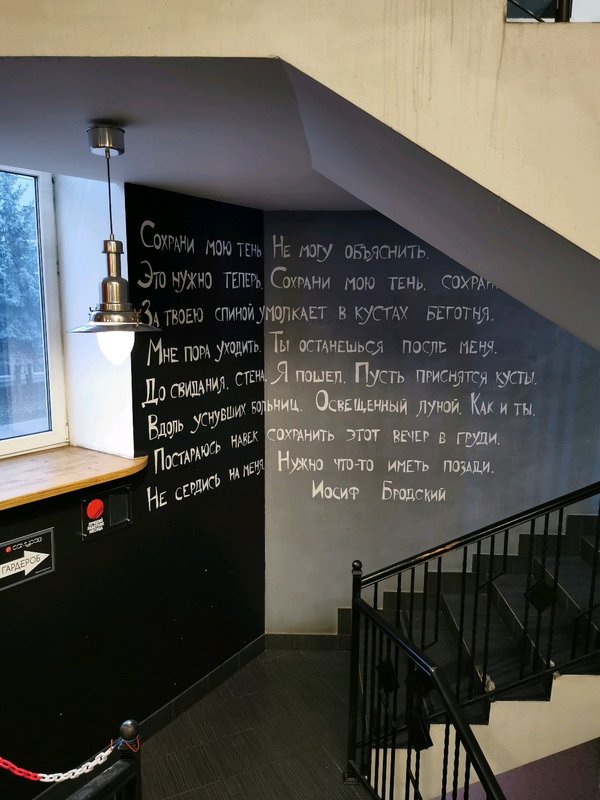 Сохрани мою тень. Не могу объяснить.
Это нужно теперь. Сохрани мою тень. сохран
За твоею спиной умолкает в кустах беготня.
Мне пора уходить. Ты останешься после меня.
До свидания, стена. Я пошел. Пусть приснятся кусты.
Вдоль уснувших больниц. Освещенный луной. Как и ты.
Постараюсь навек сохранить этот вечер в груди.
Не сердись на меня. Нужно что-то иметь позади.
Иосиф Бродский
ГАРДЕРОБ